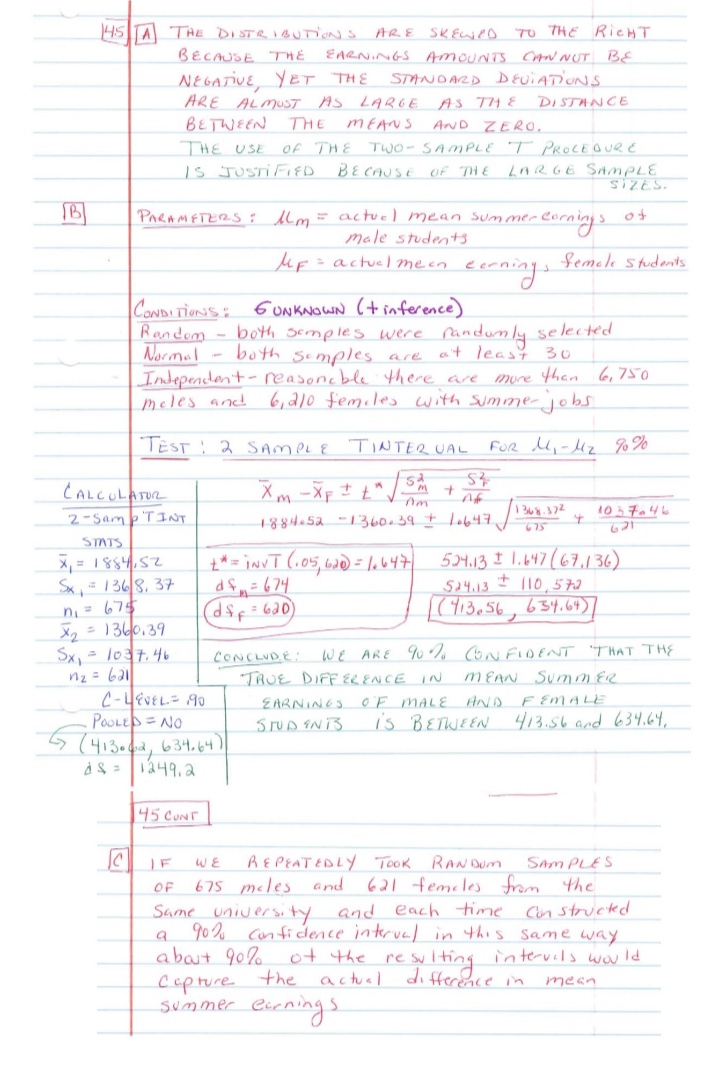 45 A THE DISTRIBUTIONS ARE SKEWED TO THE RIGHT
BECAUSE THE EARNINGS AMOUNTS CANNOT BE
NEGATIVE, YET THE STANDARD DEVIATIONS
ARE ALMOST AS LARGE AS THE DISTANCE
BETWEEN THE MEANS AND ZERO.
THE USE OF THE TWO-SAMPLE T PROCEDURE
IS JUSTIFIED BECAUSE OF THE LARGE SAMPLE
SIZES.
B PARAMETERS: μm = actual mean summer earnings of
male students
μF = actual mean earnings female students
CONDITIONS: σ UNKNOWN (t inference)
Random - both samples were randomly selected
Normal - both samples are at least 30
Independent - reasonable there are more than 6,750
males and 6,210 females with summer jobs
TEST: 2 SAMPLE T INTERVAL FOR μ1-μ2 90%
CALCULATOR
2-SampTINT
STATS
x̄1 = 1884.52
Sx1 = 1368.37
n1 = 675
x̄2 = 1360.39
Sx1 = 1037.46
n2 = 621
C-LEVEL = .90
POOLED = NO
(413.62, 634.64)
df = 1249.2
x̄m - x̄F ± t* √(S²m/nm + S²f/nf)
1884.52 - 1360.39 ± 1.647 √(1368.37²/675 + 1037.46/621)
t* = invT (.05, 620) = 1.647
dfm = 674
dfF = 620
524.13 ± 1.647 (67.136)
524.13 ± 110.572
(413.56, 634.64)
CONCLUDE: WE ARE 90% CONFIDENT THAT THE
TRUE DIFFERENCE IN MEAN SUMMER
EARNINGS OF MALE AND FEMALE
STUDENTS IS BETWEEN 413.56 and 634.64.
45 CONT
C IF WE REPEATEDLY TOOK RANDOM SAMPLES
OF 675 males and 621 females from the
same university and each time constructed
a 90% confidence interval in this same way
about 90% of the resulting intervals would
capture the actual difference in mean
summer earnings